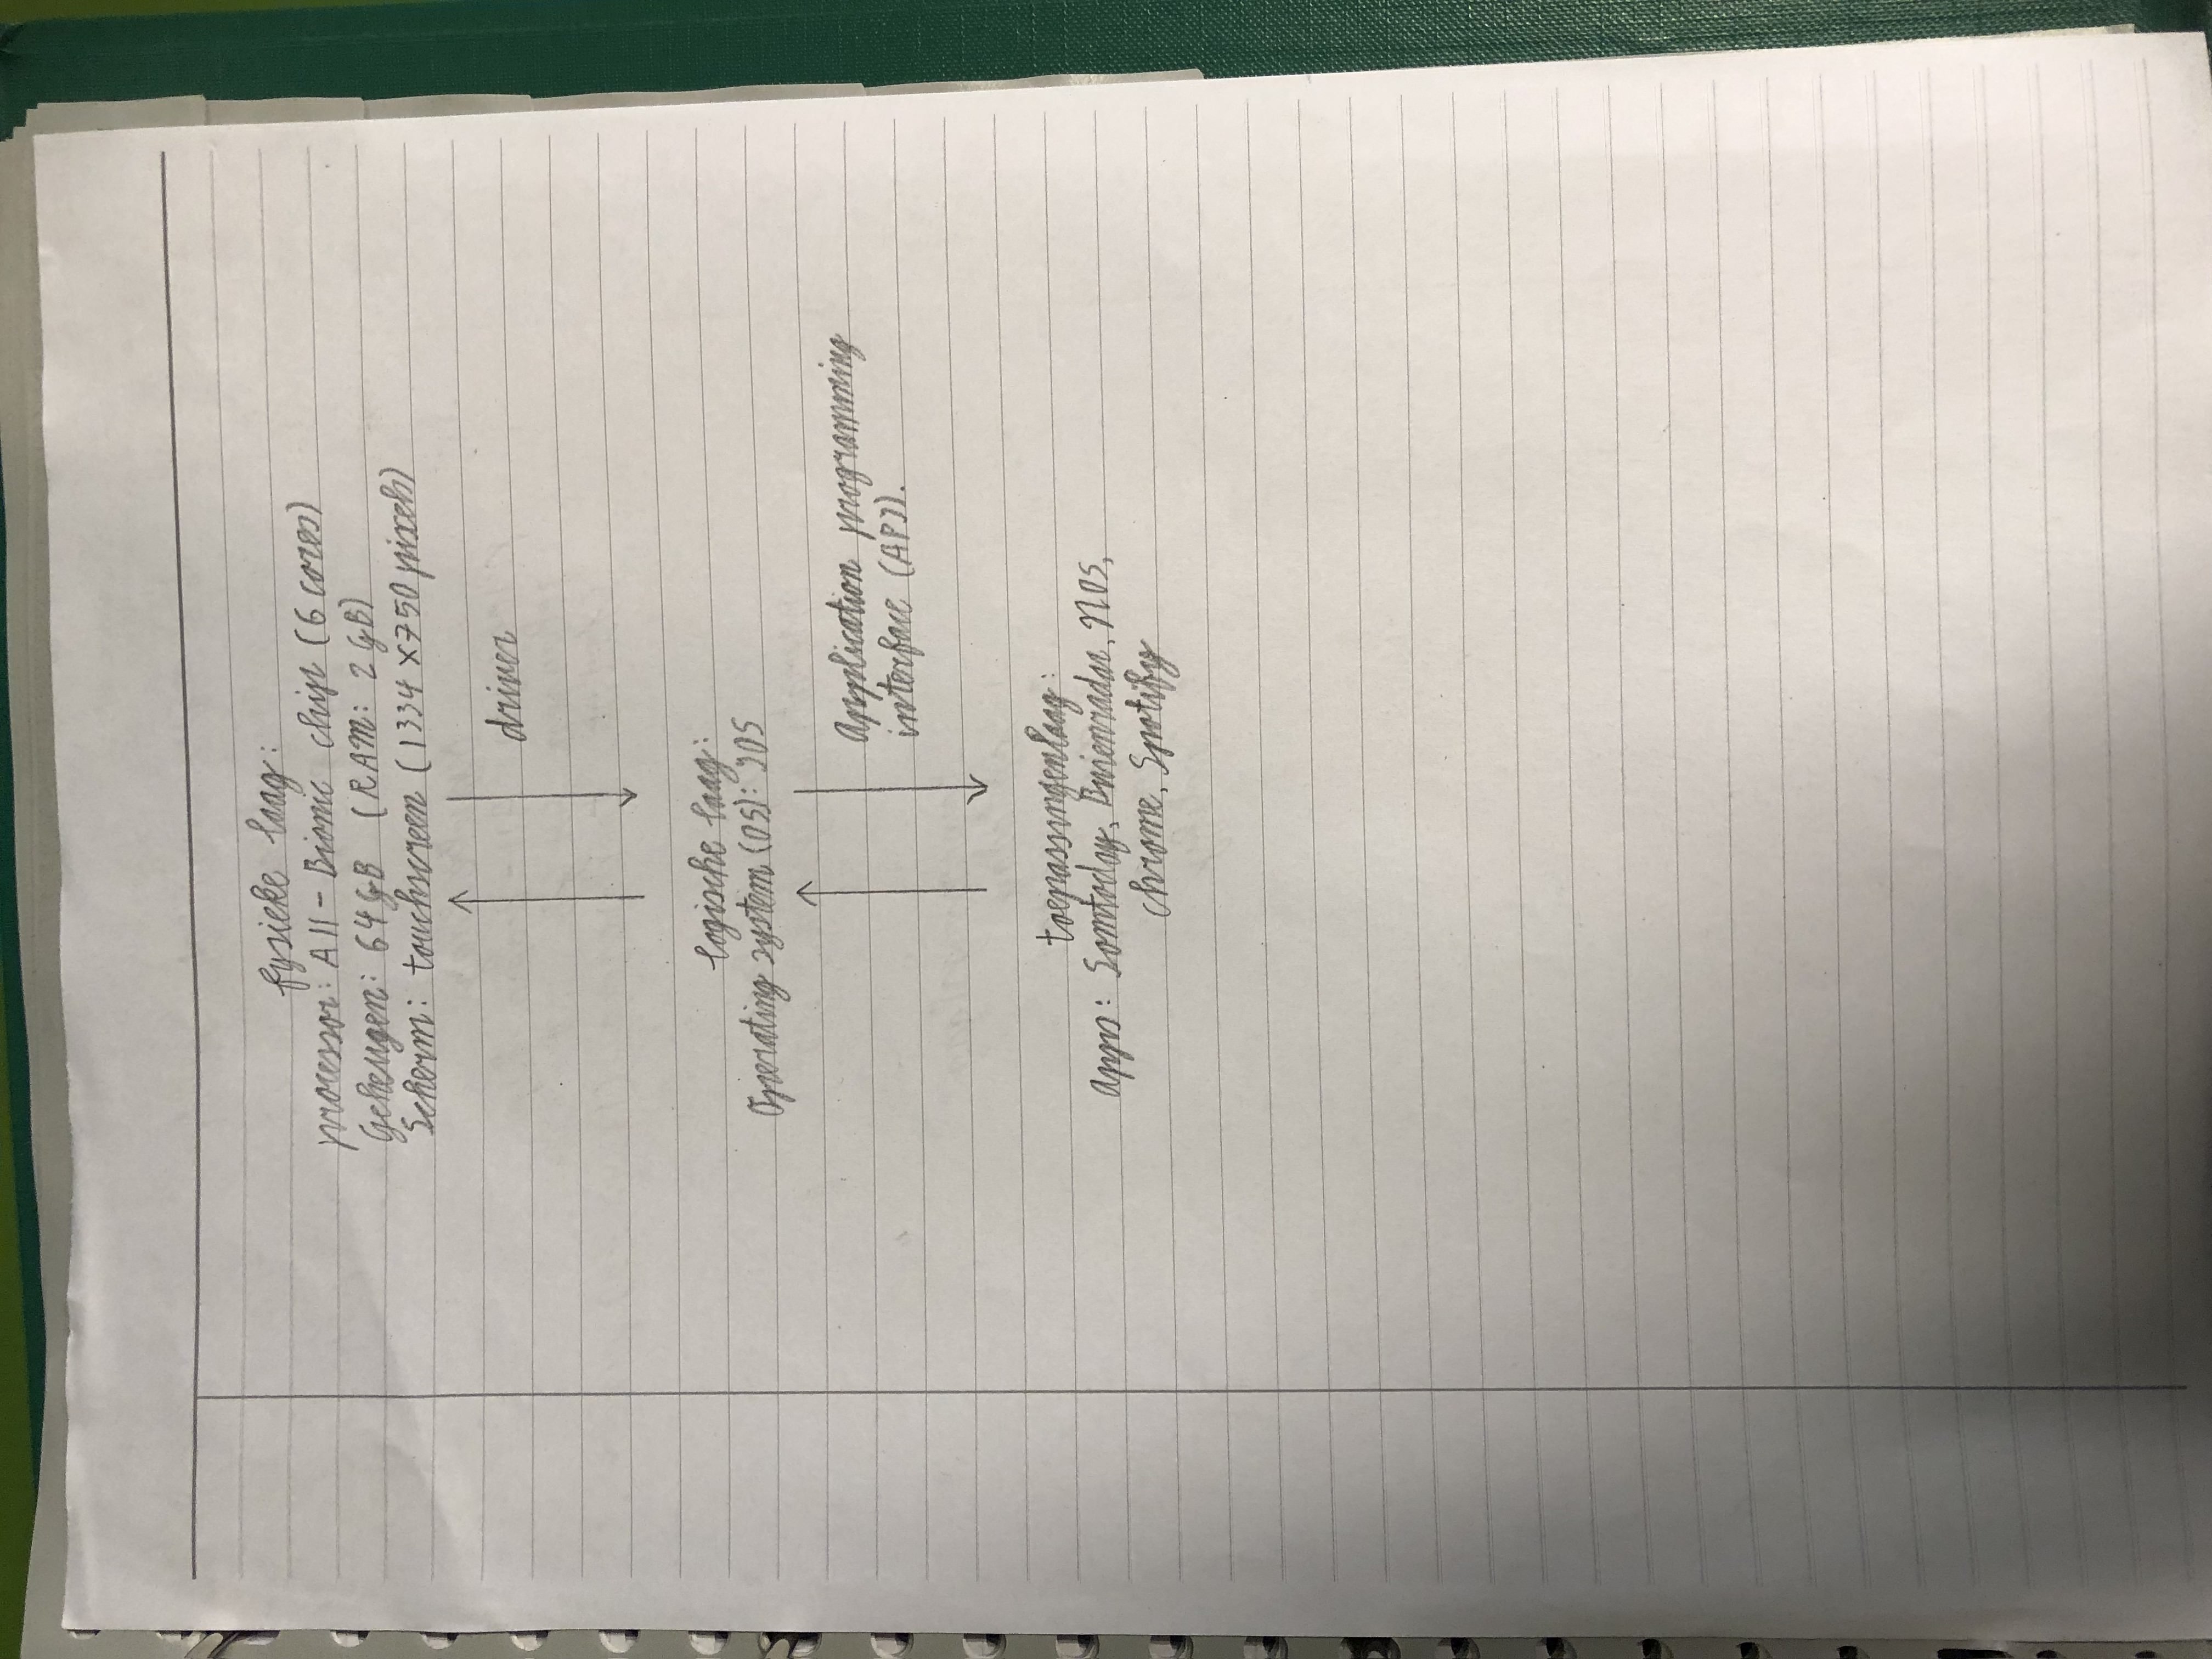 fysieke laag:
processor: A11-Bionic chip (6 cores)
Geheugen: 64 GB (RAM: 2 GB)
Scherm: touchscreen (1334 x 750 pixels)
driver
logische laag:
Operating system (OS): IOS
Application programming
interface (API).
toepassingenlaag:
Apps: Somtoday, Buienradar, NOS,
Chrome, Spotify